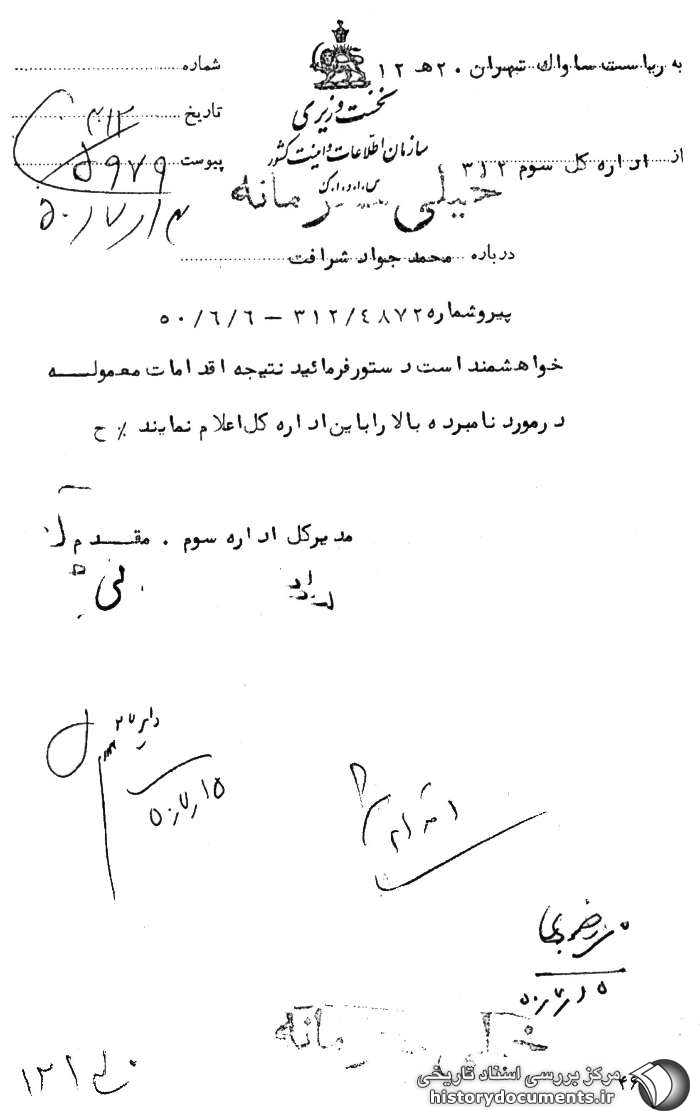 به ریاست ساواک تهران ۲۰ هـ ۱۲
شماره
نخست وزیری
تاریخ
سازمان اطلاعات و امنیت کشور
پیوست
س.ا.و.ا.ک
۳۱۲
۵۹۷۹
۵۰/۷/۱۳
از اداره کل سوم ۳۱۲
خیلی محرمانه
درباره محمد جواد شرافت
پیرو شماره ۳۱۲/٤۸۷۲ – ۵۰/۶/۶
خواهشمند است دستور فرمائید نتیجه اقدامات معموله
در مورد نامبرده بالا را باین اداره کل اعلام نمایند ٪ ح
مدیرکل اداره سوم . مقدم
۵۰/۷/۱۵
اقدام
۵۰/۷/۱۵
خیلی محرمانه
۱۲۱
مرکز بررسی اسناد تاریخی
historydocuments.ir